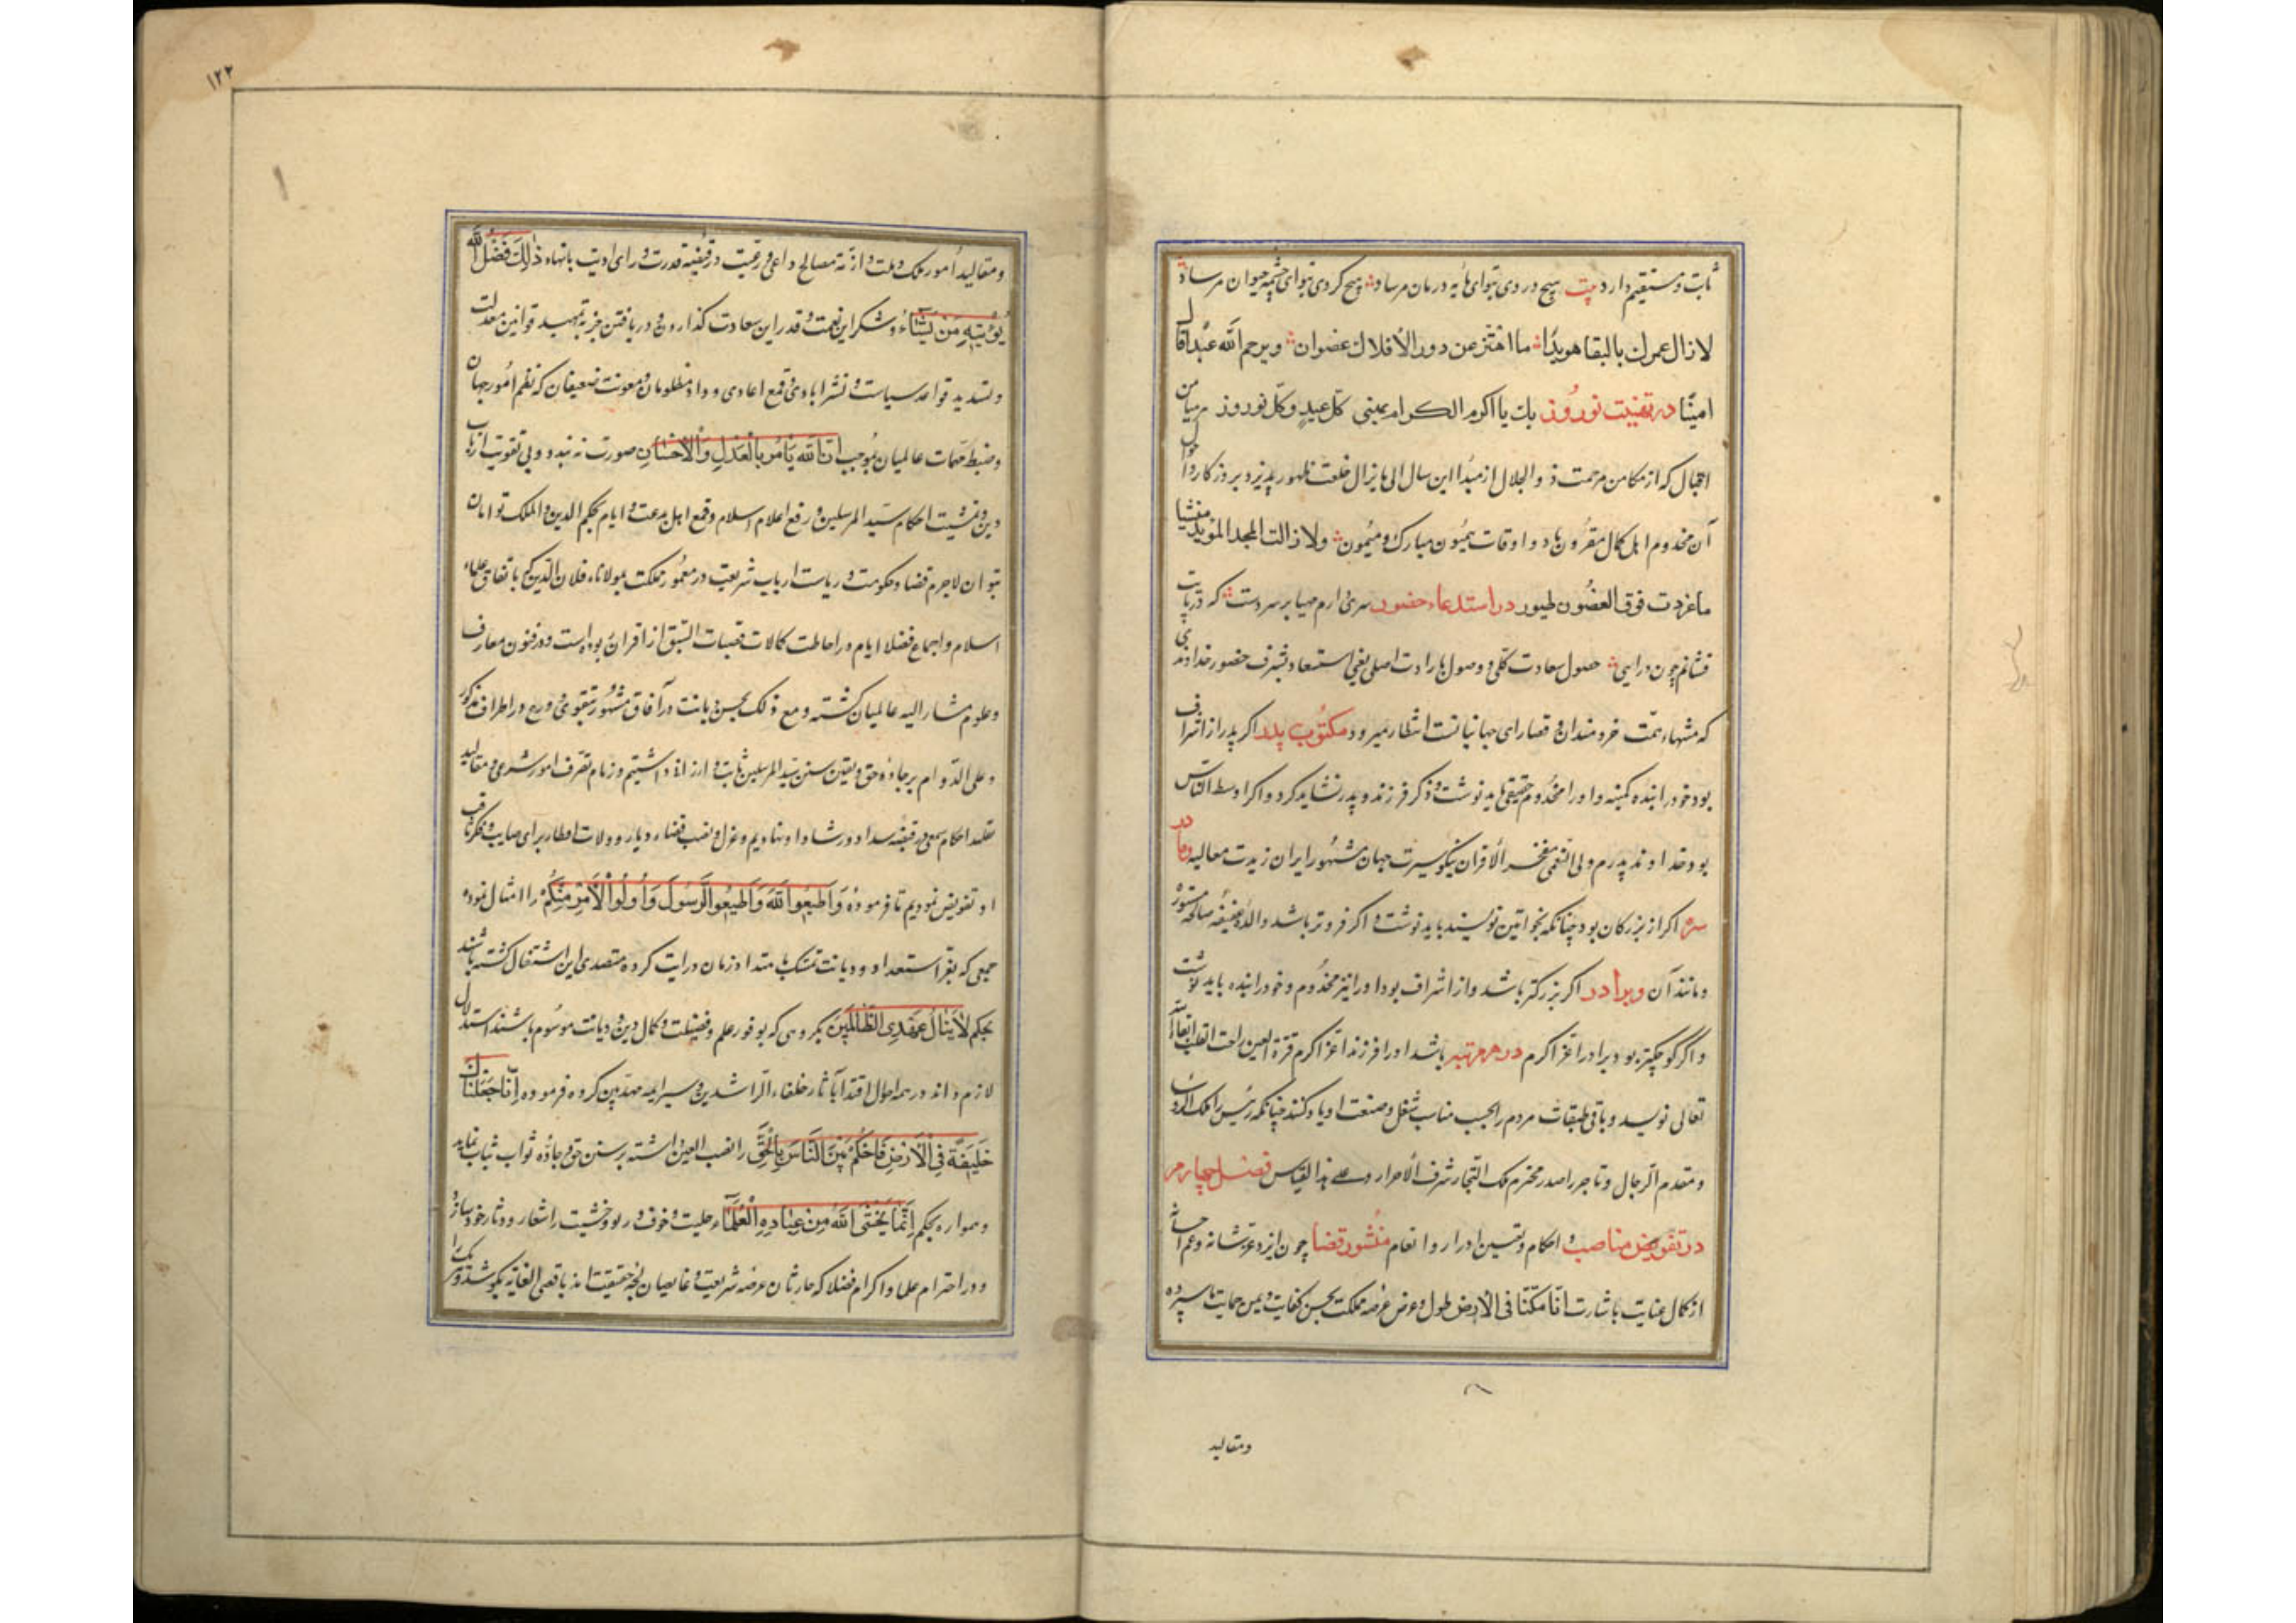 ثابت و مستقیم دارد بیت هیچ دردی بتو ای مایه درمان مرساد هیچ کردی بتو ای چشمه حیوان مرساد
لازال عمرك بالبقا هویدًا ما اهتز عن دور الافلاك غضوان ویرحم الله عبدًا قال
امینًا در تهنیت نوروز بك یا اکرم الکرام یهنی کل عید وکل نوروز میامن
اقبال که از مکامن مرحمت ذو الجلال از مبدا این سال الی مایزال خلعت ظهور پذیرد بروزکار دوا
آن مخدوم اهل کمال مقرون باد و اوقات همیون مبارك و میمون ولا زالت المجد الموید منشیا
ما غردت فوق الغصون طیور در استدعاء حضور سری دارم مهیا بر سر دست که در پایت
فشانم چون درایی حصول سعادت کلی و وصول بارادت اصلی یعنی استسعاد بشرف حضور خداوندی
که منتهاء همت خردمندان و قصارای جهانیانست انتظار میرود مکتوب پدر اکر پدر از اشراف
بود خود را بنده کمینه و او را مخدوم حقیقی باید نوشت و ذکر فرزند و پدر نشاید کرد و اکر اوسط الناس
بود خداوند پدرم ولی النعمی مفخر الاقران نیکو سیرت جهان مشهور ایران زیدت معالیه و مادر
اکر از بزرکان بود چنانکه بخواتین نویسند باید نوشت و اکر فروتر باشد والده عفیفه صالحه مستوره
و مانند آن و برادر اکر بزرکتر باشد و از اشراف بود او را نیز مخدوم و خود را بنده باید نوشت
و اکر کوچکتر بود برادر اعز اکرم در هر مرتبه باشد او را فرزند اعز اکرم قرة العین راحت القلب ابقاه الله
تعالی نویسد و باقی طبقات مردم را بحسب مناسب شغل و صنعت او یاد کنند چنانکه رئیس را ملك
و مقدم الرجال و تاجر را صدر محترم ملك التجار شرف الاحرار و علی هذا القیاس فصل چهارم
در تفویض مناصب و احکام و تعیین ادرار و انعام منشور قضا چون ایزد عز شانه و عم احسانه
از کمال عنایت باشارت انا مکنا فی الارض طول و عرض عرصه مملکت بحسن کفایت و یمن حمایت ما سپرده
ومقالید
۱۲۲
و مقالید امور ملك و ملت و ازمه مصالح داعی و رعیت در قبضه قدرت و رای رویت ما نهاد ذٰلِكَ فَضْلُ اللّٰه
یُؤْتِیهِ مَنْ یَشَاءُ و شکر این نعمت و قدر این سعادت کذاردن و دریافتن جز به تمهید قوانین معدلت
و تشدید قواعد سیاست و نشر ایادی و قمع اعادی و داد مظلومان و معونت ضعیفان که نظم امور جهان
و ضبط مهمات عالمیان بموجب اِنَّ اللّٰه یَأْمُرُ بِالْعَدْلِ وَالْاِحْسَانِ صورت نه بندد و بی تقویت ارباب
دین و تمشیت احکام سید المرسلین و رفع اعلام اسلام و قمع اهل بدعت و ایام بحکم الدین و الملك توامان
نتوان لاجرم قضا و حکومت و ریاست ارباب شریعت در معموره مملکت بمولانا فلان الدین که باتفاق علماء
اسلام و اجماع فضلا ایام در احاطت کمالات قصبات السبق از اقران ربوده است و در فنون معارف
و علوم مشار الیه عالمیان کشته و مع ذلك بحسن دیانت در آفاق مشهور و بتقوی و ورع در اطراف مذکور
و علی الدوام بر جاده حق و یقین سنن سید المرسلین ثابت و ارزانی داشتیم و زمام تصرف امور شرعی و مقالید
احکام سمعی در قبضه سداد و رشاد او نهادیم و عزل و نصب قضاء دیار و ولات اقطار برای صایب و فکر ثاقب
او تفویض نمودیم تا فرموده وَاَطِیعُوا اللّٰهَ وَاَطِیعُوا الرَّسُولَ وَاُولُوا الْاَمْرِ مِنْکُمْ را امتثال نموده
جمعی که بفرط استعداد و دیانت تمسك بامتداد زمان درایت کرده متصدی این اشتغال کشته باشند
بحکم لَا یَنَالُ عَهْدِی الظَّالِمِینَ بکروهی که بوفور علم و فضیلت و کمال دین و دیانت موسوم باشند استدلال
لازم داند در همه احوال اقتدا بآثار خلفاء الراشدین و سیر ایمه مهدیین کرده فرموده اِنَّا جَعَلْنَاكَ
خَلِیفَةً فِی الْاَرْضِ فَاحْکُمْ بَیْنَ النَّاسِ بِالْحَقِّ را نصب العین داشته بر سنن حق و جاده ثواب ثبات نماید
و همواره بحکم اِنَّمَا یَخْشَی اللّٰهَ مِنْ عِبَادِهِ الْعُلَمَاء و خوف ربو و خشیت را شعار و دثار خود سازد
و در احترام علما و اکرام فضلا که حارثان عرصه شریعت و غایصان لجه حقیقت اند باقصی الغایه بکوشد